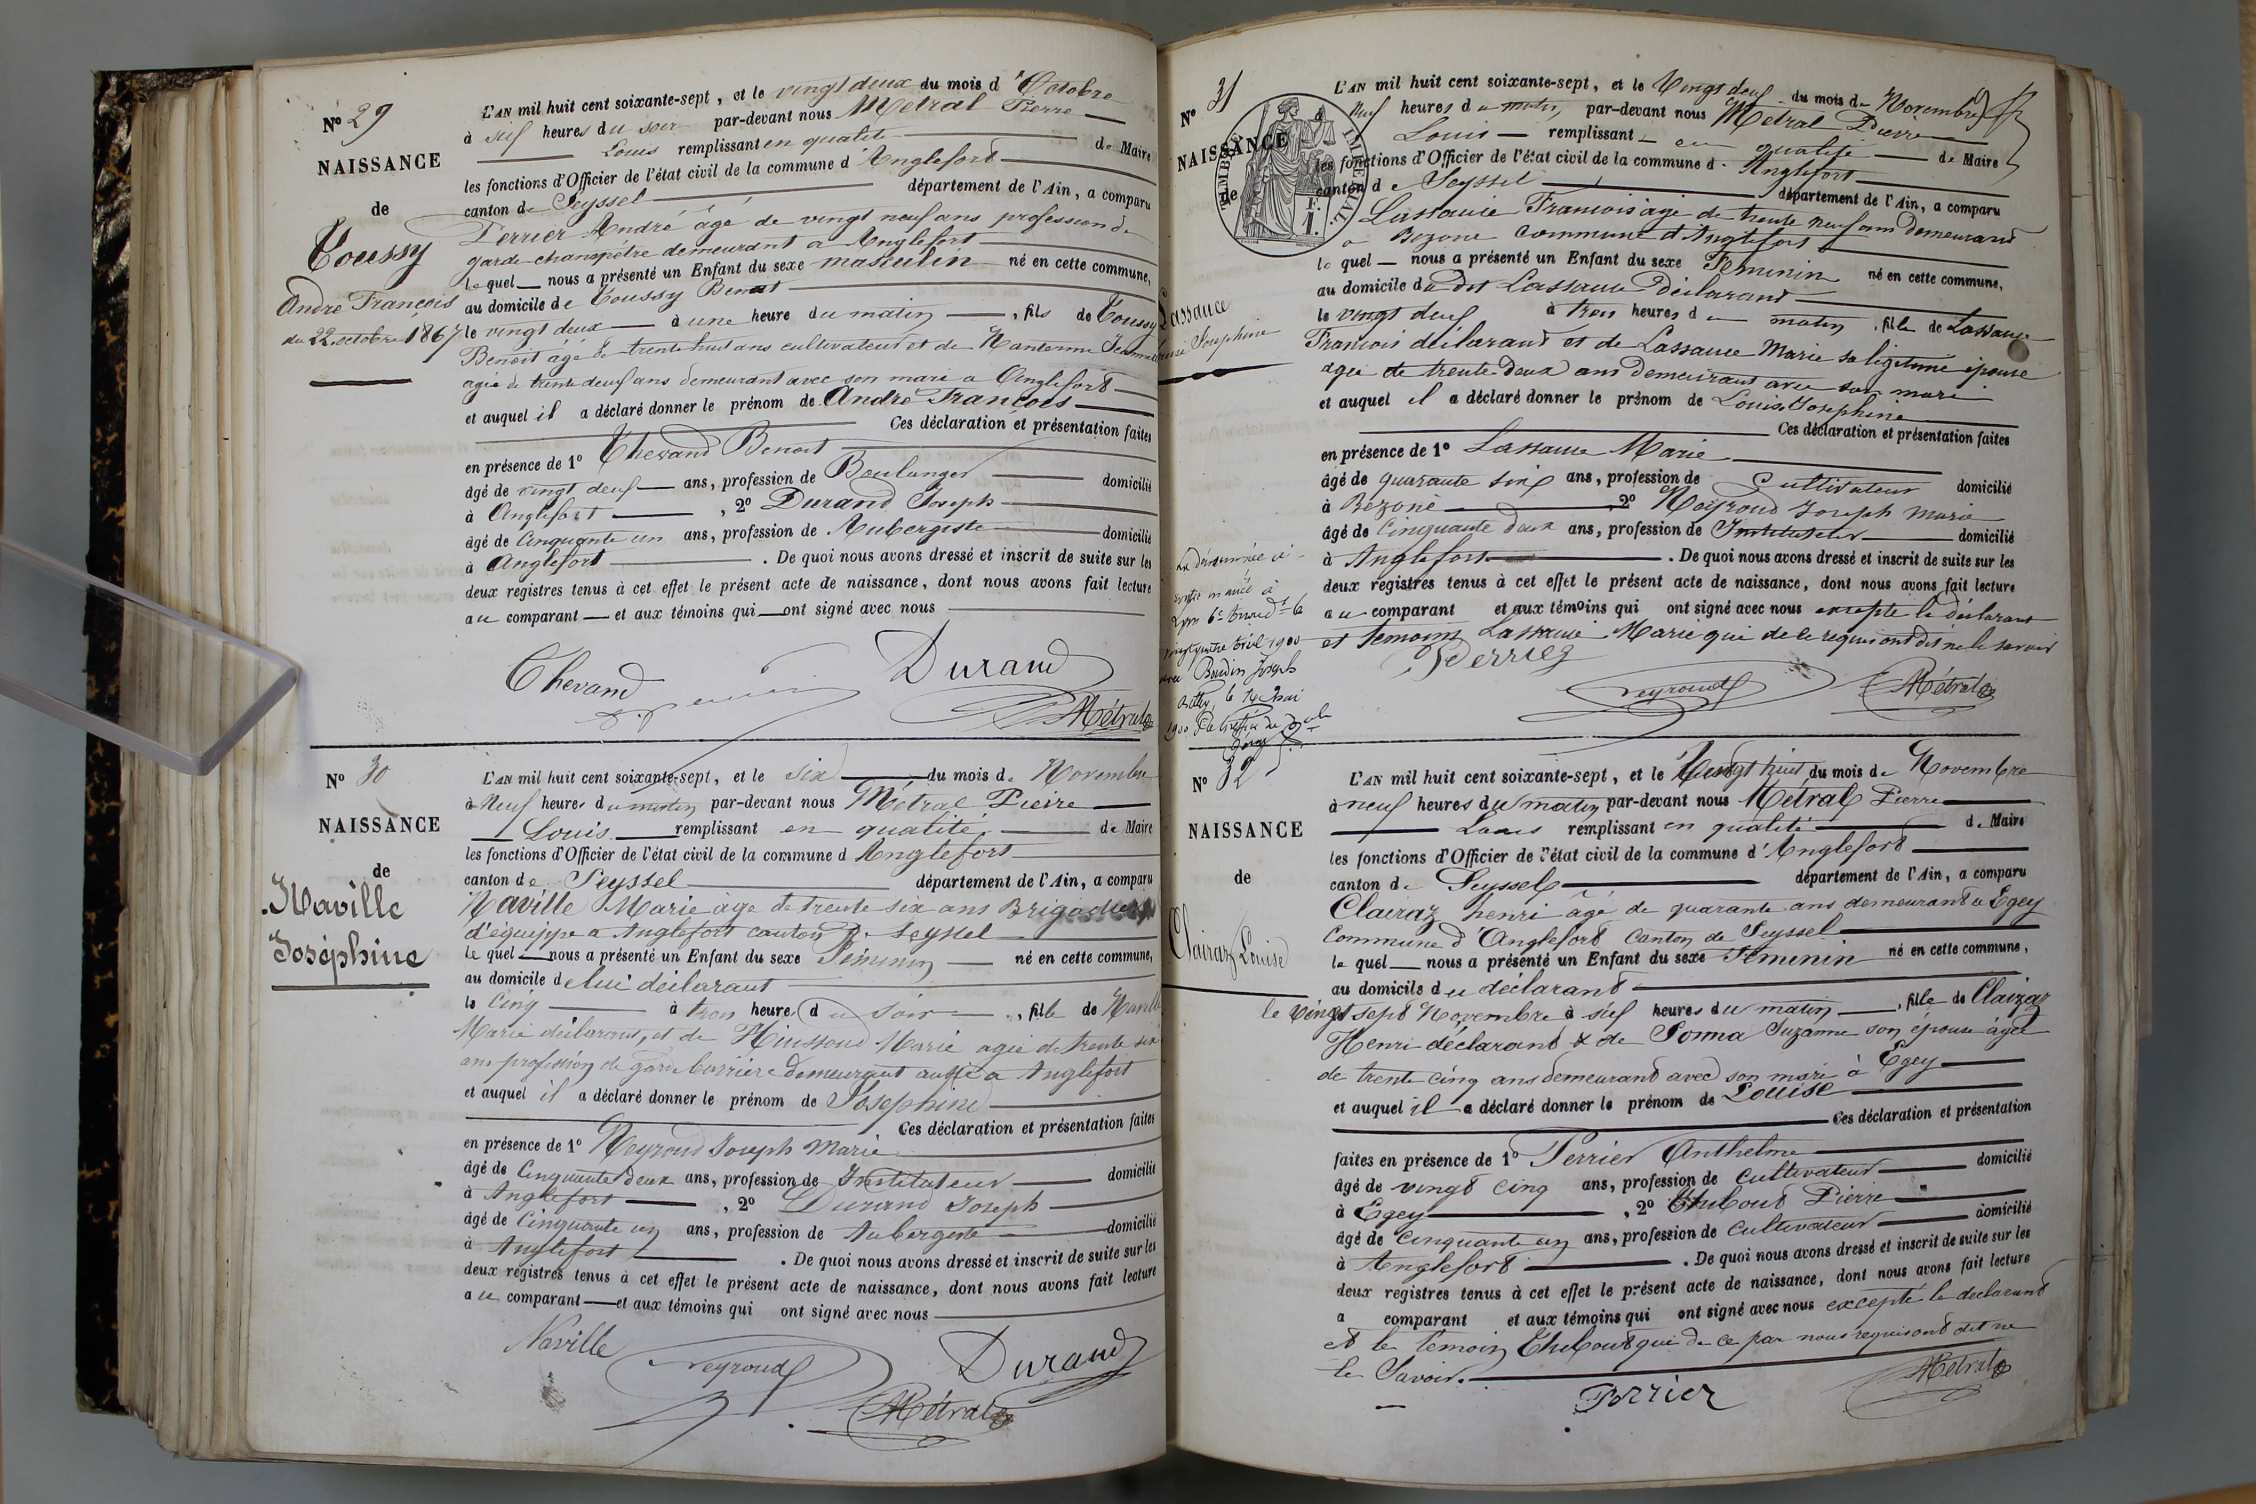 N° 29
NAISSANCE
de
Toussy
André François
du 22 octobre 1867
L'AN mil huit cent soixante-sept, et le vingt deux du mois d'Octobre
à six heures du soir par-devant nous Métral Pierre
Louis remplissant en qualité de Maire
les fonctions d'Officier de l'état civil de la commune d'Anglefort
canton de Seyssel département de l'Ain, a comparu
Perrier André âgé de vingt neuf ans profession de
garde champêtre demeurant a Anglefort
lequel nous a présenté un Enfant du sexe masculin né en cette commune,
au domicile de Toussy Benoit
le vingt deux à une heure du matin, fils de Toussy
Benoit âgé de trente huit ans cultivateur et de Nanterme Jeanne
agée de trente deux ans demeurant avec son mari a Anglefort
et auquel il a déclaré donner le prénom de André François
Ces déclaration et présentation faites
en présence de 1° Thevand Benoit
âgé de vingt neuf ans, profession de Boulanger domicilié
à Anglefort, 2° Durand Joseph
âgé de Cinquante un ans, profession de Aubergiste domicilié
à Anglefort. De quoi nous avons dressé et inscrit de suite sur les
deux registres tenus à cet effet le présent acte de naissance, dont nous avons fait lecture
au comparant et aux témoins qui ont signé avec nous
Thevand Durand
Métral
N° 30
NAISSANCE
de
Naville
Joséphine
L'AN mil huit cent soixante-sept, et le six du mois de Novembre
à Neuf heures du matin par-devant nous Métral Pierre
Louis remplissant en qualité de Maire
les fonctions d'Officier de l'état civil de la commune d Anglefort
canton de Seyssel département de l'Ain, a comparu
Naville Marie âgé de trente six ans Brigadier
d'équippe a Anglefort canton de Seyssel
lequel nous a présenté un Enfant du sexe Féminin né en cette commune,
au domicile de lui déclarant
le Cinq à trois heures du soir, fille de Naville
Marie déclarant, et de Marie agée de trente six
ans profession de garde barrière demeurant aussi a Anglefort
et auquel il a déclaré donner le prénom de Joséphine
Ces déclaration et présentation faites
en présence de 1° Neyroud Joseph Marie
âgé de Cinquante deux ans, profession de Instituteur domicilié
à Anglefort, 2° Durand Joseph
âgé de Cinquante un ans, profession de Aubergiste domicilié
à Anglefort. De quoi nous avons dressé et inscrit de suite sur les
deux registres tenus à cet effet le présent acte de naissance, dont nous avons fait lecture
au comparant et aux témoins qui ont signé avec nous
Naville Neyroud Durand
Métral
N° 31
NAISSANCE
de
TIMBRE IMPERIAL
1 F.
Lassauce
Joséphine
L'AN mil huit cent soixante-sept, et le Vingt deux du mois de Novembre
Neuf heures du matin, par-devant nous Métral Pierre
Louis remplissant en qualité de Maire
les fonctions d'Officier de l'état civil de la commune d'Anglefort
canton de Seyssel département de l'Ain, a comparu
Lassauce Francois âgé de trente neuf ans demeurant
a Bezone commune d'Anglefort
lequel nous a présenté un Enfant du sexe Féminin né en cette commune,
au domicile du dit Lassauce Déclarant
le vingt deux à trois heures du matin, fille de Lassauce
Francois déclarant et de Lassauce Marie sa légitime épouse
agée de trente-deux ans demeurant avec son mari
et auquel il a déclaré donner le prénom de Louise Joséphine
Ces déclaration et présentation faites
en présence de 1° Lassauce Marie
âgé de quarante six ans, profession de Cultivateur domicilié
à Bezone 2° Neyroud Joseph Marie
âgé de Cinquante deux ans, profession de Instituteur domicilié
à Anglefort. De quoi nous avons dressé et inscrit de suite sur les
deux registres tenus à cet effet le présent acte de naissance, dont nous avons fait lecture
au comparant et aux témoins qui ont signé avec nous excepté le déclarant
et témoins Lassauce Marie qui de ce requis ont dit ne le savoir
Perrier
Neyroud Métral
La dénommée ci-
contre mariée à
Lyon 6e arrondt le
vingt quatre avril 1900
avec Baudin Joseph
Mai
1900
N° 32
NAISSANCE
de
Clairaz Louise
L'AN mil huit cent soixante-sept, et le Vingt huit du mois de Novembre
à neuf heures du matin par-devant nous Métral Pierre
Louis remplissant en qualité de Maire
les fonctions d'Officier de l'état civil de la commune d'Anglefort
canton de Seyssel département de l'Ain, a comparu
Clairaz henri âgé de quarante ans demeurant a Egey
Commune d'Anglefort Canton de Seyssel
lequel nous a présenté un Enfant du sexe Féminin né en cette commune,
au domicile du déclarant
le Vingt sept Novembre à six heures du matin, fille de Clairaz
Henri déclarant & de Sonna Suzanne son épouse âgée
de trente cinq ans demeurant avec son mari à Egey
et auquel il a déclaré donner le prénom de Louise
Ces déclaration et présentation
faites en présence de 1° Perrier Anthelme
âgé de vingt cinq ans, profession de cultivateur domicilié
à Egey, 2° Thibout Pierre
âgé de cinquante un ans, profession de cultivateur domicilié
à Anglefort. De quoi nous avons dressé et inscrit de suite sur les
deux registres tenus à cet effet le présent acte de naissance, dont nous avons fait lecture
a comparant et aux témoins qui ont signé avec nous excepté le déclarant
et le témoin Thibout qui de ce par nous requis ont dit ne
le Savoir.
Perrier Métral